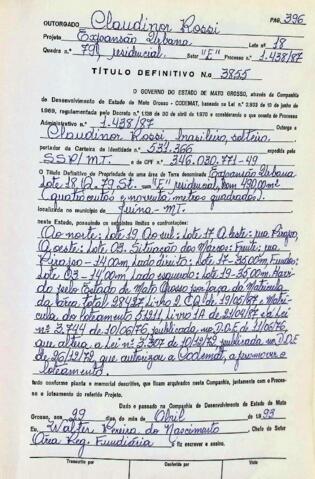 PAG. 396
OUTORGADO Claudinor Rossi
Projeto Expansão Urbana Lote nº 18
Quadra n.º 79, residencial. Setor "E" Processo nº 1.438/87
TÍTULO DEFINITIVO N.o 3855
O GOVERNO DO ESTADO DE MATO GROSSO, através da Companhia
de Desenvolvimento do Estado de Mato Grosso - CODEMAT, baseado na Lei nº 2.903 de 10 de junho de
1969, regulamentada pelo Decreto n.º 1.138 de 30 de abril de 1970 e considerando o que consta do Processo
Administrativo n.º 1.438/87 Outorga a
Claudinor Rossi, brasileiro, solteiro,
portador da Carteira de Identidade nº 531.366 expedida pela
SSP/MT. e do CPF nº 346.030.771-49
O Título Definitivo de Propriedade de uma área de Terra denominada Expansão Urbana
Lote 18 Q. 79 St. "E" residencial, com 490,00m²
(quatrocentos e noventa metros quadrados).
localizada no município de Juina-MT.
neste Estado, possuindo os seguintes limites e confrontações:
Ao norte: Lote 19, Ao sul: Lote 17 A leste: rua Pirajo,
A oeste: Lote 03. Situação dos Marcos: Frente: rua
Pirajo - 14,00m, Lado direito: Lote 17 - 35,00m Fundo:
Lote 03 - 14,00m, Lado esquerdo: Lote 19 - 35,00m.
pelo Estado de Mato Grosso por força da Matrícula
da área total 28437 Livro 2 de 19/05/87 e Matrí-
cula do loteamento 51211 Livro 1A de 21/09/87 da Lei
nº 3.744 de 10/06/76, publicada no D.O.E de 11/06/76,
que altera a Lei nº 3.307 de 10/12/72 publicada no D.O.E
de 26/12/72 que autorizou a Codemat, a promover o
loteamento.
tudo conforme planta e memorial descritivo, que ficam arquivados nesta Companhia, juntamente com o Proces-
so e loteamento do referido Projeto.
Dado e passado na Companhia de Desenvolvimento do Estado de Mato
Grosso, aos 29 dias, do mês de Abril de 19 93
Eu, Walter Pereira do Nascimento Chefe do Setor
Área Reg. Fundiária fiz escrever e assino.
Transcrito por Conferido por Visto